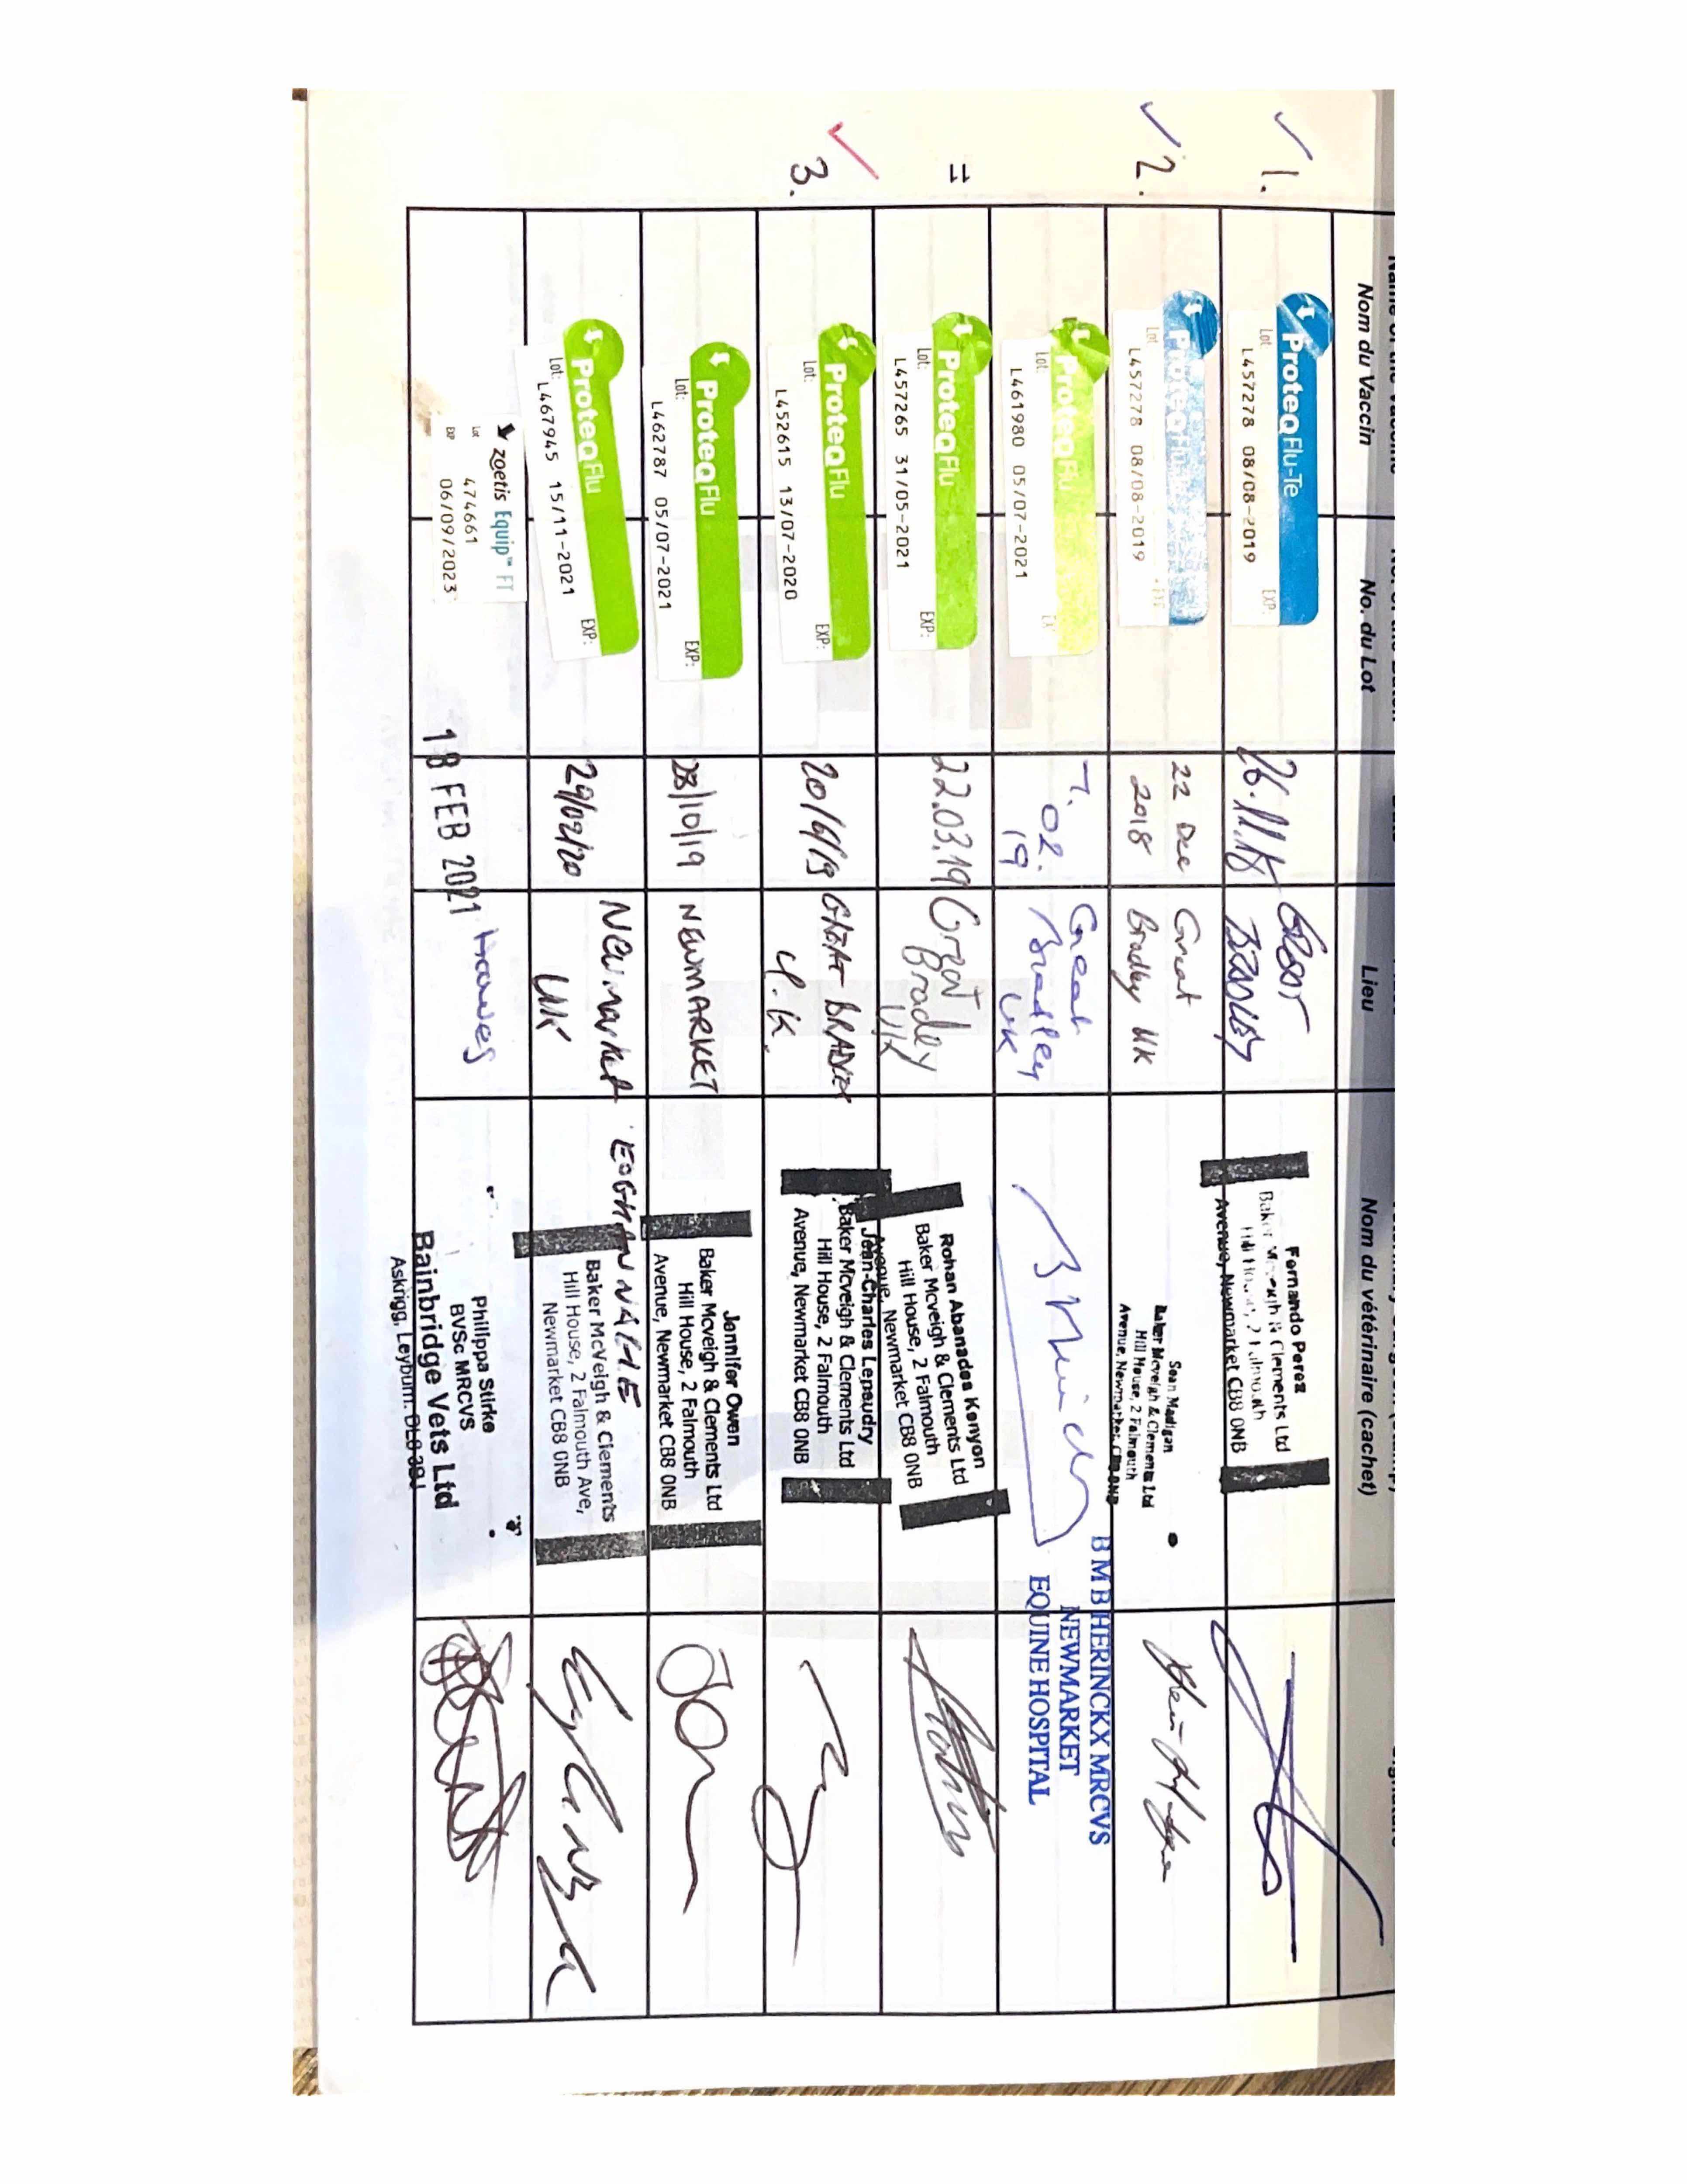 Nom du Vaccin
No. du Lot
Lieu
Nom du vétérinaire (cachet)
✓ 1.
ProteqFlu-Te
Lot: EXP:
L457278 08/08-2019
26.11.18
BRADLEY
Fernando Perez
Baker Mcveigh & Clements Ltd
Hill House, 2 Falmouth
Avenue, Newmarket CB8 0NB
✓ 2.
ProteqFlu-Te
Lot
L457278 08/08-2019
22 Dec
2018
Great
Bradley UK
Sean Madigan
Baker Mcveigh & Clements Ltd
Hill House, 2 Falmouth
Avenue, Newmarket CB8 0NB
ProteqFlu
Lot:
L461980 05/07-2021
7.
02.
19
Great
Bradley
UK
B M B HERINCKX MRCVS
NEWMARKET
EQUINE HOSPITAL
11
ProteqFlu
Lot: EXP:
L457265 31/05-2021
22.03.19
Great
Bradley
UK
Rohan Abanades Kenyon
Baker Mcveigh & Clements Ltd
Hill House, 2 Falmouth
Avenue, Newmarket CB8 0NB
✓ 3.
ProteqFlu
Lot: EXP:
L452615 13/07-2020
20/6/19
GREAT BRADLEY
U.K.
Jean-Charles Lepeudry
Baker Mcveigh & Clements Ltd
Hill House, 2 Falmouth
Avenue, Newmarket CB8 0NB
ProteqFlu
Lot: EXP:
L462787 05/07-2021
28/10/19
NEWMARKET
Jennifer Owen
Baker Mcveigh & Clements Ltd
Hill House, 2 Falmouth
Avenue, Newmarket CB8 0NB
ProteqFlu
Lot: EXP:
L467945 15/11-2021
29/02/20
Newmarket
UK
EOGHAN
Baker McVeigh & Clements
Hill House, 2 Falmouth Ave,
Newmarket CB8 0NB
zoetis Equip™ FT
Lot 474661
EXP 06/09/2023
18 FEB 2021
Hawes
Philippa Stirke
BVSc MRCVS
Bainbridge Vets Ltd
Askrigg, Leyburn.